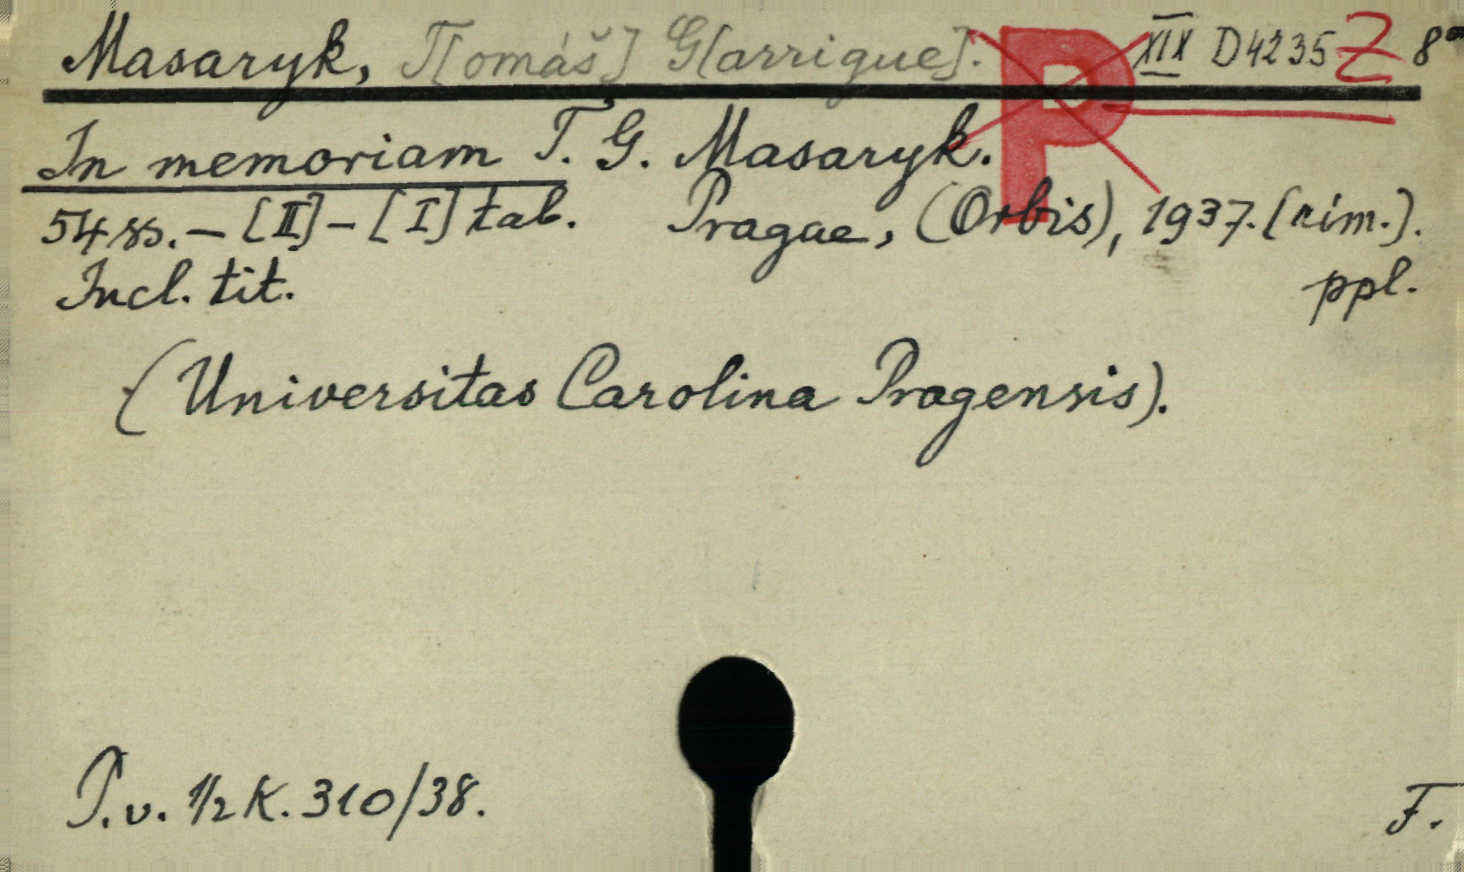 Masaryk, T[omáš] G[arrigue]. P XIX D 4235 Z 8°
In memoriam T. G. Masaryk.
54 ss. – [II] – [I] tab. Pragae, (Orbis), 1937. [rim.].
Incl. tit. ppl.
(Universitas Carolina Pragensis).
P. v. 1/2 K. 310/38. F.